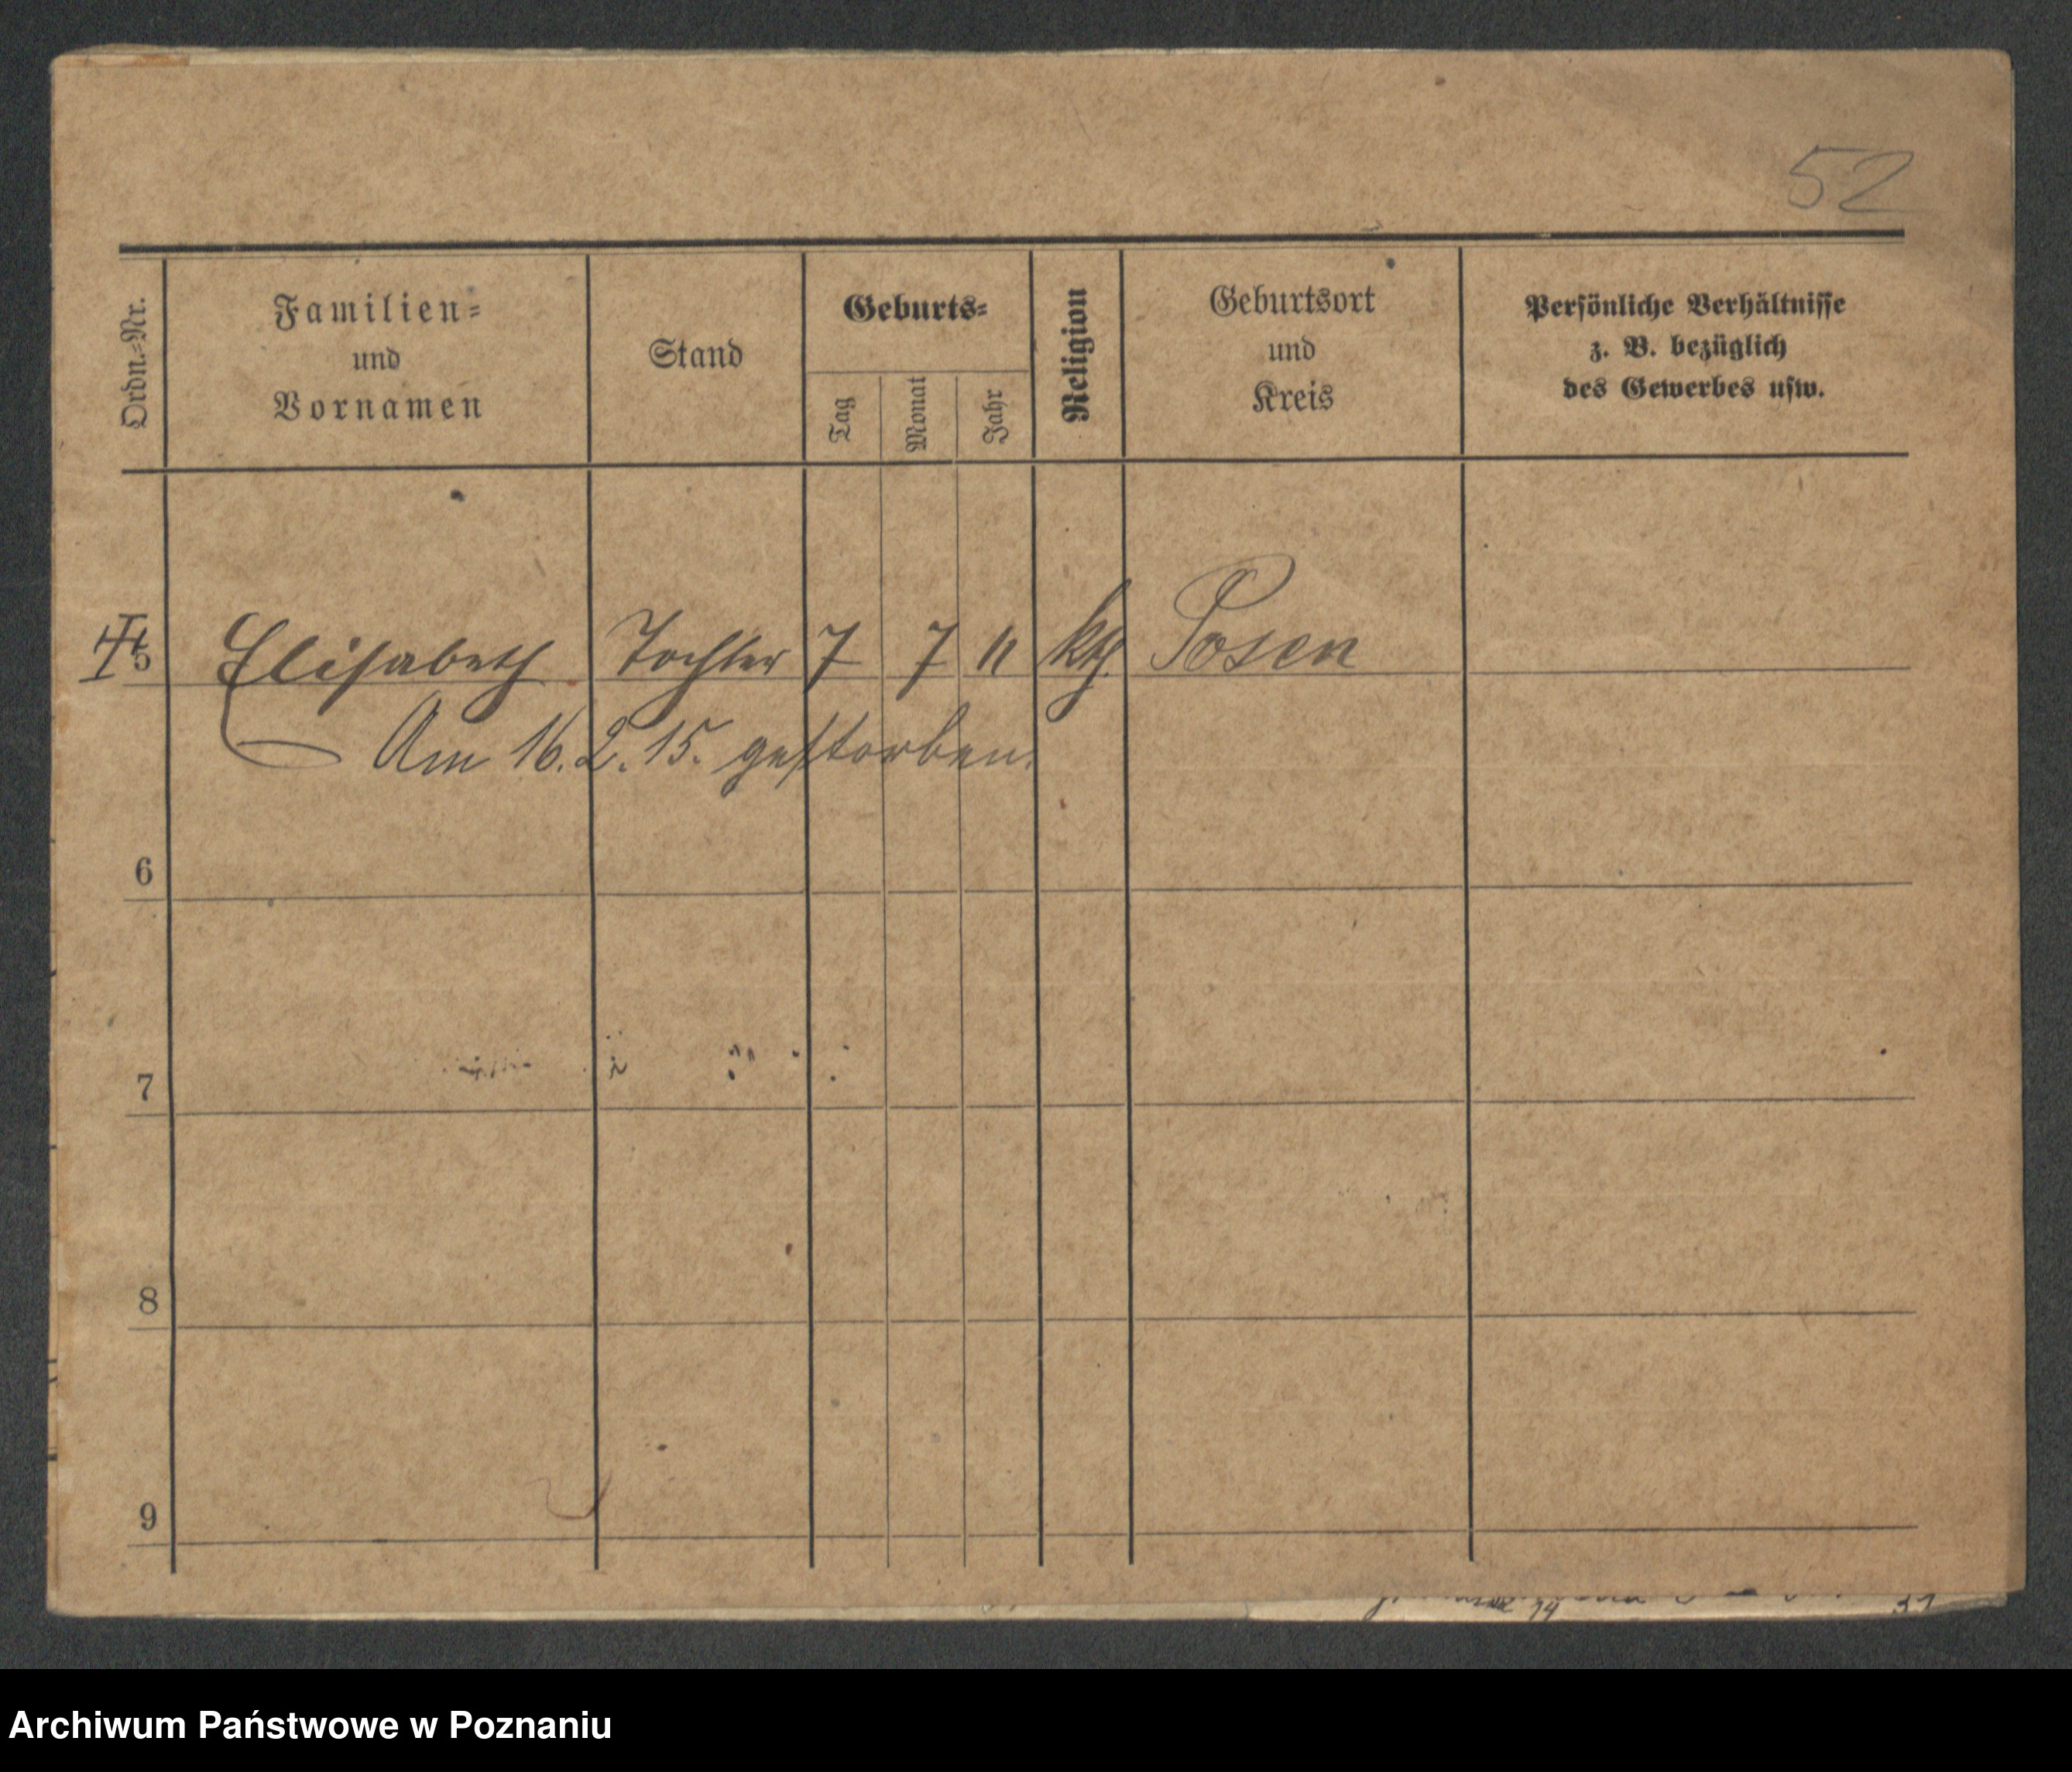 52
Ordn.-Nr.
Familien-
und
Vornamen
Stand
Geburts-
Tag
Monat
Jahr
Religion
Geburtsort
und
Kreis
Persönliche Verhältnisse
z. B. bezüglich
des Gewerbes usw.
5 Elisabeth Tochter 7 7 11 kth. Posen
Am 16.2.15. gestorben.
6
7
8
9
14
31
Archiwum Państwowe w Poznaniu